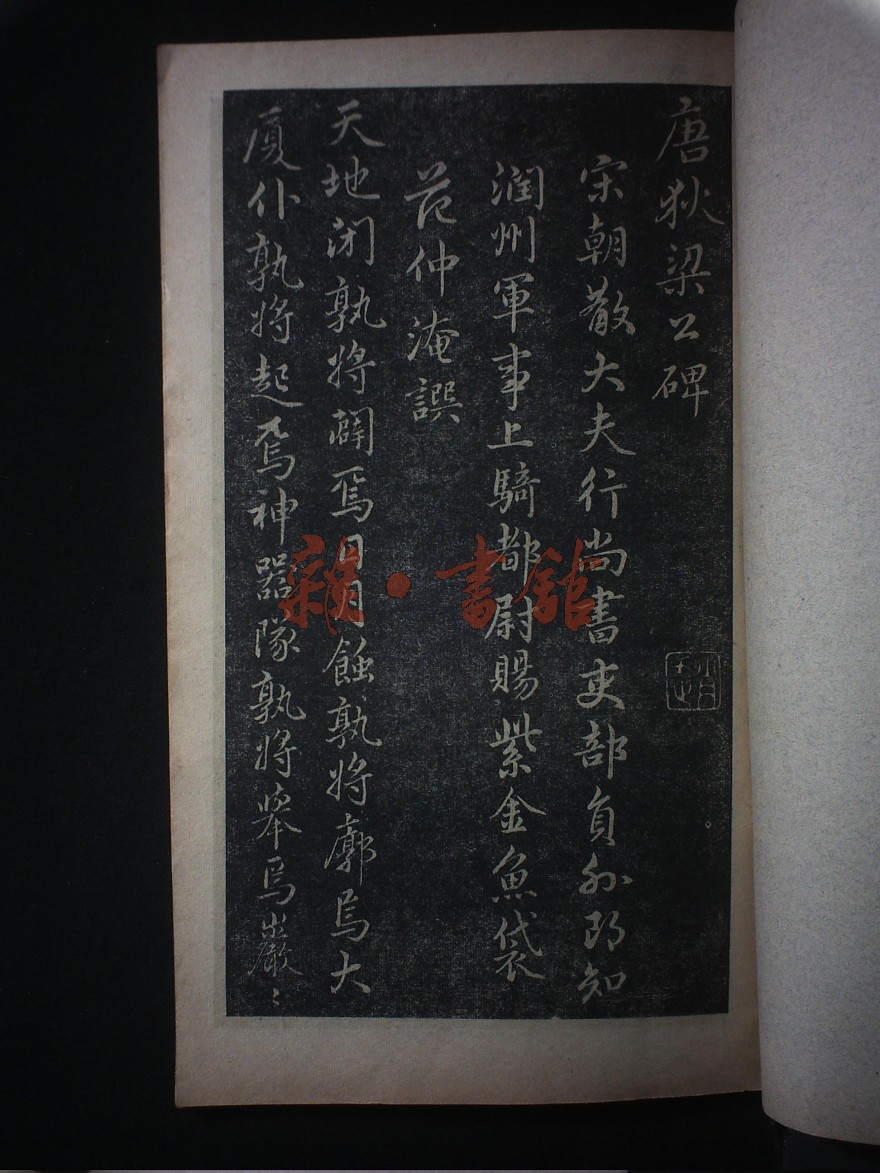 唐狄梁公碑
宋朝散大夫行尚書吏部員外郎知
潤州軍事上騎都尉賜紫金魚袋
范仲淹譔
天地閉孰將闢焉日月蝕孰將廓焉大
廈仆孰將起焉神器隊孰將舉焉巖〻
雜·書館